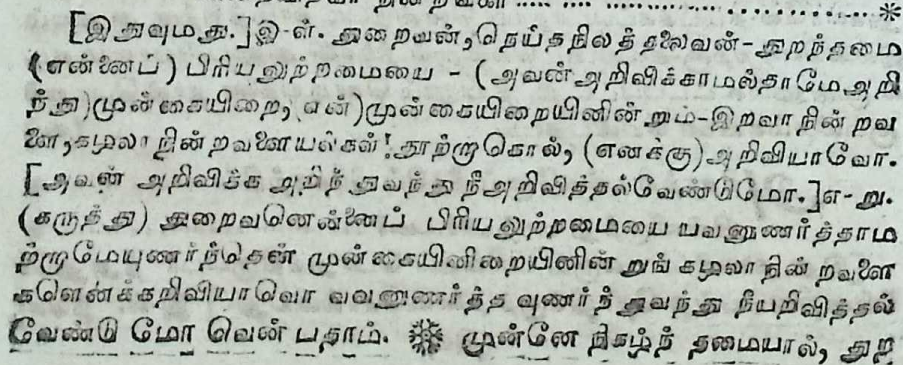 [இதுவுமது.] இ-ள். துறைவன், நெய்தநிலத்தலைவன்-துறந்தமை
(என்னைப்) பிரியலுற்றமையை - (அவன்அறிவிக்காமல்தாமேஅறி
ந்து)முன்கையிறை, (என்)முன்கையிறையினின்றும்-இறவாநின்றவ
ளை, கழலாநின்றவளையல்கள்! தூற்றுகொல், (எனக்கு)அறிவியாவோ.
[அவன் அறிவிக்க அறிந்துவந்து நீஅறிவித்தல்வேண்டுமோ.]எ-று.
(கருத்து) துறைவனென்னைப் பிரியலுற்றமையை யவனுணர்த்தாம
ற்றாமேயுணர்ந்தென் முன்கையினிறையினின்றுங் கழலாநின்றவளை
களெனக்கறிவியாவொ வவனுணர்த்த வுணர்ந்துவந்து நீயறிவித்தல்
வேண்டுமோ வென்பதாம். ❋ முன்னே நிகழ்ந்தமையால், துற